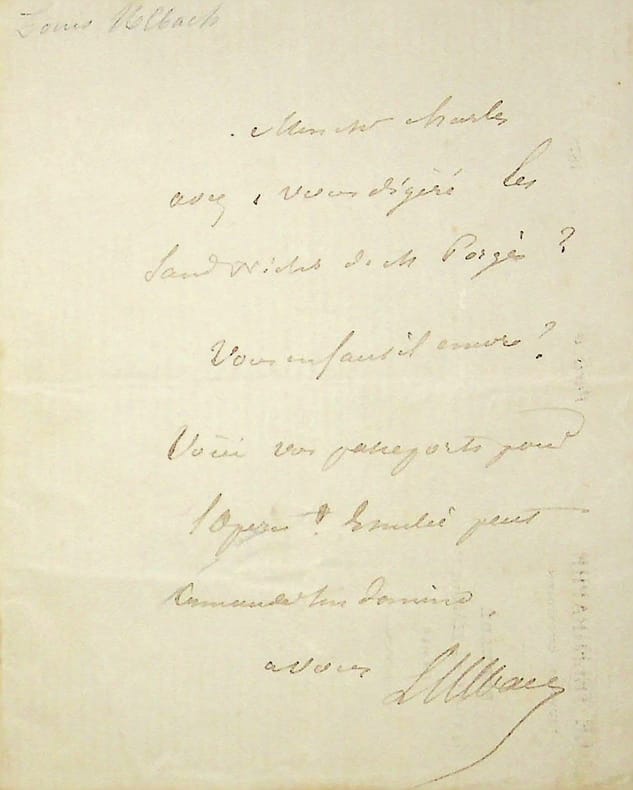 Louis Ulbach
Mon cher Charles
avez, vous digéré les
Sandwichs de M Porgès ?
Vous en faut il encore ?
Voici vos passeports pour
l'Opera. Emilie peut
commander son domino.
a vous LUlbach